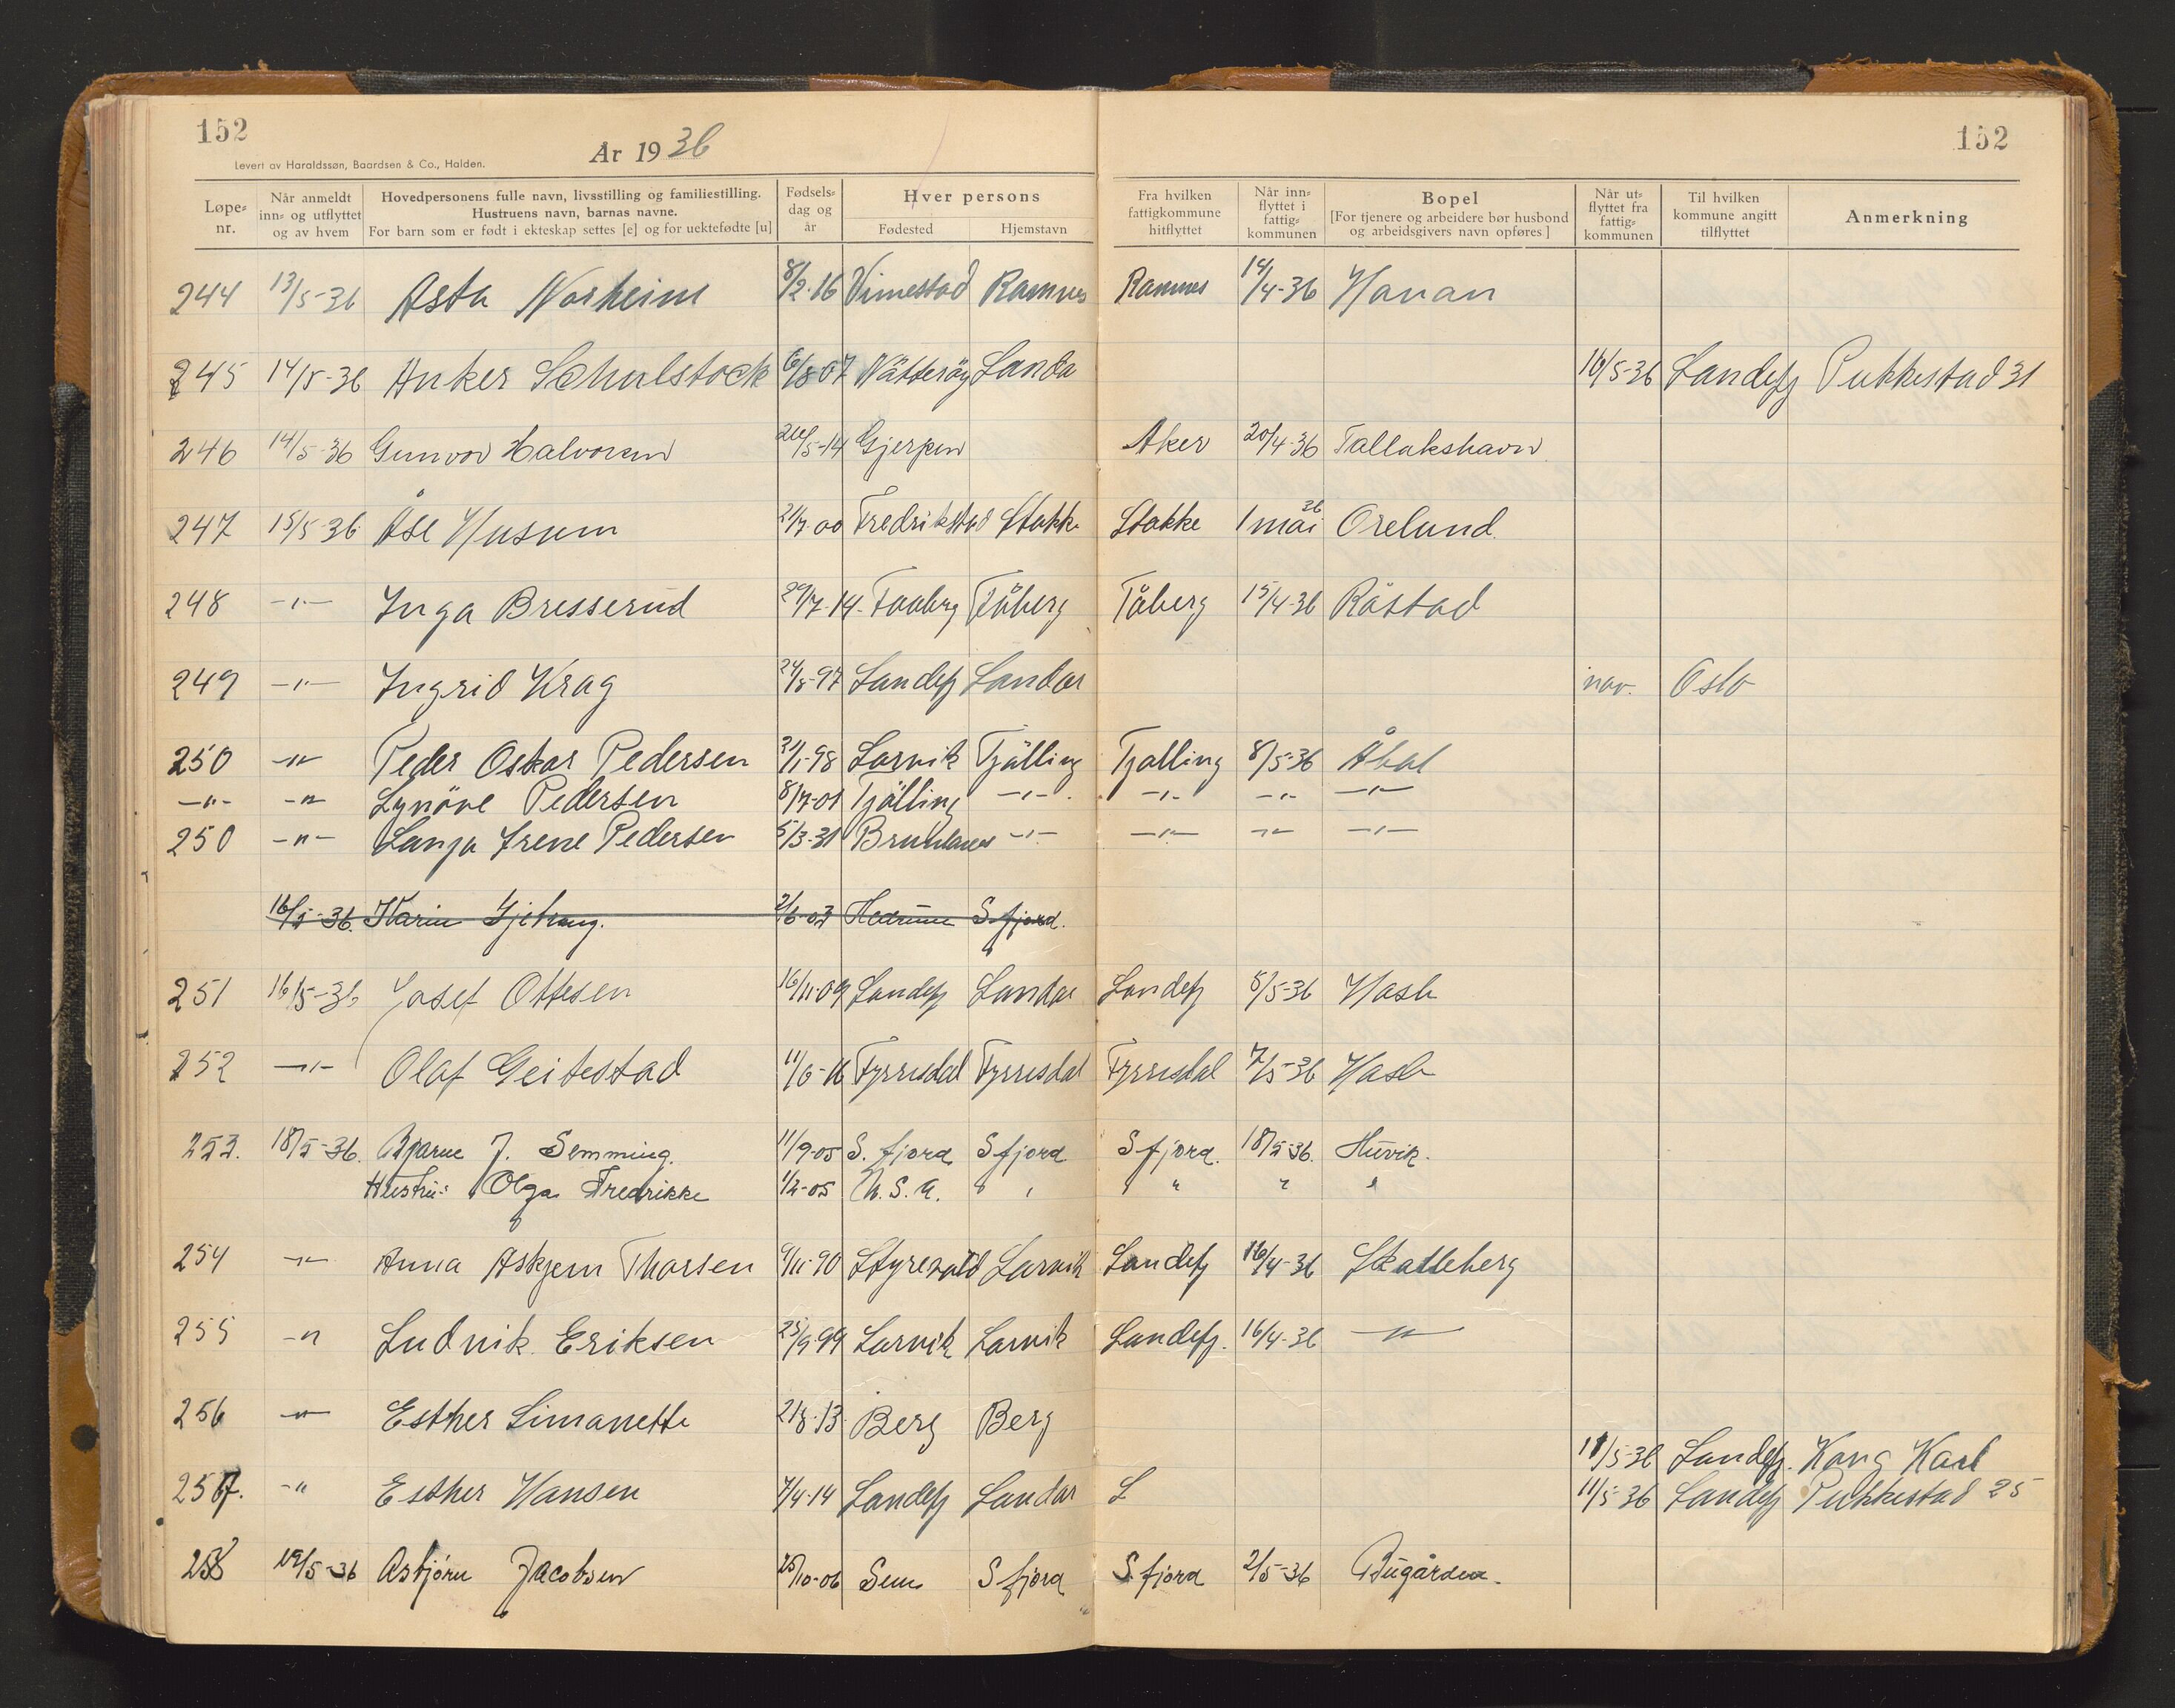 152
152
Levert av Haraldssøn, Baardsen & Co., Halden.
År 1936
Løpe-nr. Når anmeldt inn- og utflyttet og av hvem Hovedpersonens fulle navn, livsstilling og familiestilling. Hustruens navn, barnas navne. For barn som er født i ekteskap settes [e] og for uektefødte [u] Fødsels-dag og år Hver persons Fødested Hjemstavn Fra hvilken fattigkommune hitflyttet Når inn-flyttet i fattig-kommunen Bopel [For tjenere og arbeidere bør husbond og arbeidsgivers navn opføres] Når ut-flyttet fra fattig-kommunen Til hvilken kommune angitt tilflyttet Anmerkning
244 13/5-36 Asta Norheim 8/2-16 Vimestad Ramnes Ramnes 14/4-36 Havan
245 14/5-36 Anker Schulstock 6/8-07 Nøtterøy Sanda 16/5-36 Sandefj Pukkestad 31
246 14/5-36 Gunvor Halvorsen 24/5-14 Gjerpen Aker 20/4-36 Tallakshavn
247 15/5-36 Åse Husum 2/7-00 Fredrikstad Stokke Stokke 1 mai 36 Orelund.
248 -"- Inga Bresserud 29/7-14 Faaberg Fåberg Fåberg 15/4-36 Råstad
249 -"- Ingrid Krag 24/8-97 Sandefj Sandar nov. Oslo
250 -"- Peder Oskar Pedersen 31/1-98 Larvik Tjølling Tjølling 8/5-36 Åbol
-"- -"- Synøve Pedersen 8/7-01 Tjølling -"- -"- -"- -"-
250 -"- Sanja Irene Pedersen 5/3-31 Brunlanes -"- -"- -"- -"-
16/5-36. Karin 2/6-03 Hedrum S.fjord.
251 16/5-36 Josef Ottesen 16/11-09 Sandefj Sandar Sandefj 8/5-36 Hasle
252 -"- Olaf Geitestad 11/6-16 Fyrresdal Fyrresdal Fyrresdal 7/5-36 Hasle
253. 18/5-36. Bjarne J. Semming. 11/9-05 S.fjord S.fjord S.fjord. 18/5-36. Huvik.
Hustru: Olga Fredrikke 1/2-05 U.S.A. " " " " " "
254 -"- Anna Askjem Thorsen 9/11-90 Styrevold Larvik Sandefj 16/4-36 Skalleberg
255 -"- Ludvik Eriksen 25/9-99 Larvik Larvik Sandefj. 16/4-36 -"-
256 -"- Esther Simanette 21/8-13 Berg Berg 11/5-36 Sandefj. Kong Karl
257. -"- Esther Hansen 7/4-14 Sandefj Sandar S 11/5-36 Sandefj Pukkestad 25
258 19/5-36 Asbjørn Jacobsen 25/10-06 Sem S.fjord S.fjord 2/5-36 Bugården.